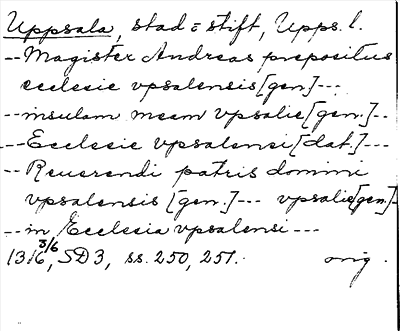 Uppsala, stad o stift, Upps. l.
-- Magister Andreas prepositus
ecclesie vpsalensis [gen.] ---
-- insulam meam vpsalie [gen.] --
--- Ecclesie vpsalensi [dat.] ---
-- Reuerendi patris domini
vpsalensis [gen.] --- vpsalie [gen.] -
--- in Ecclesia vpsalensi ---
1316 3/6, SD 3, ss. 250, 251. orig.